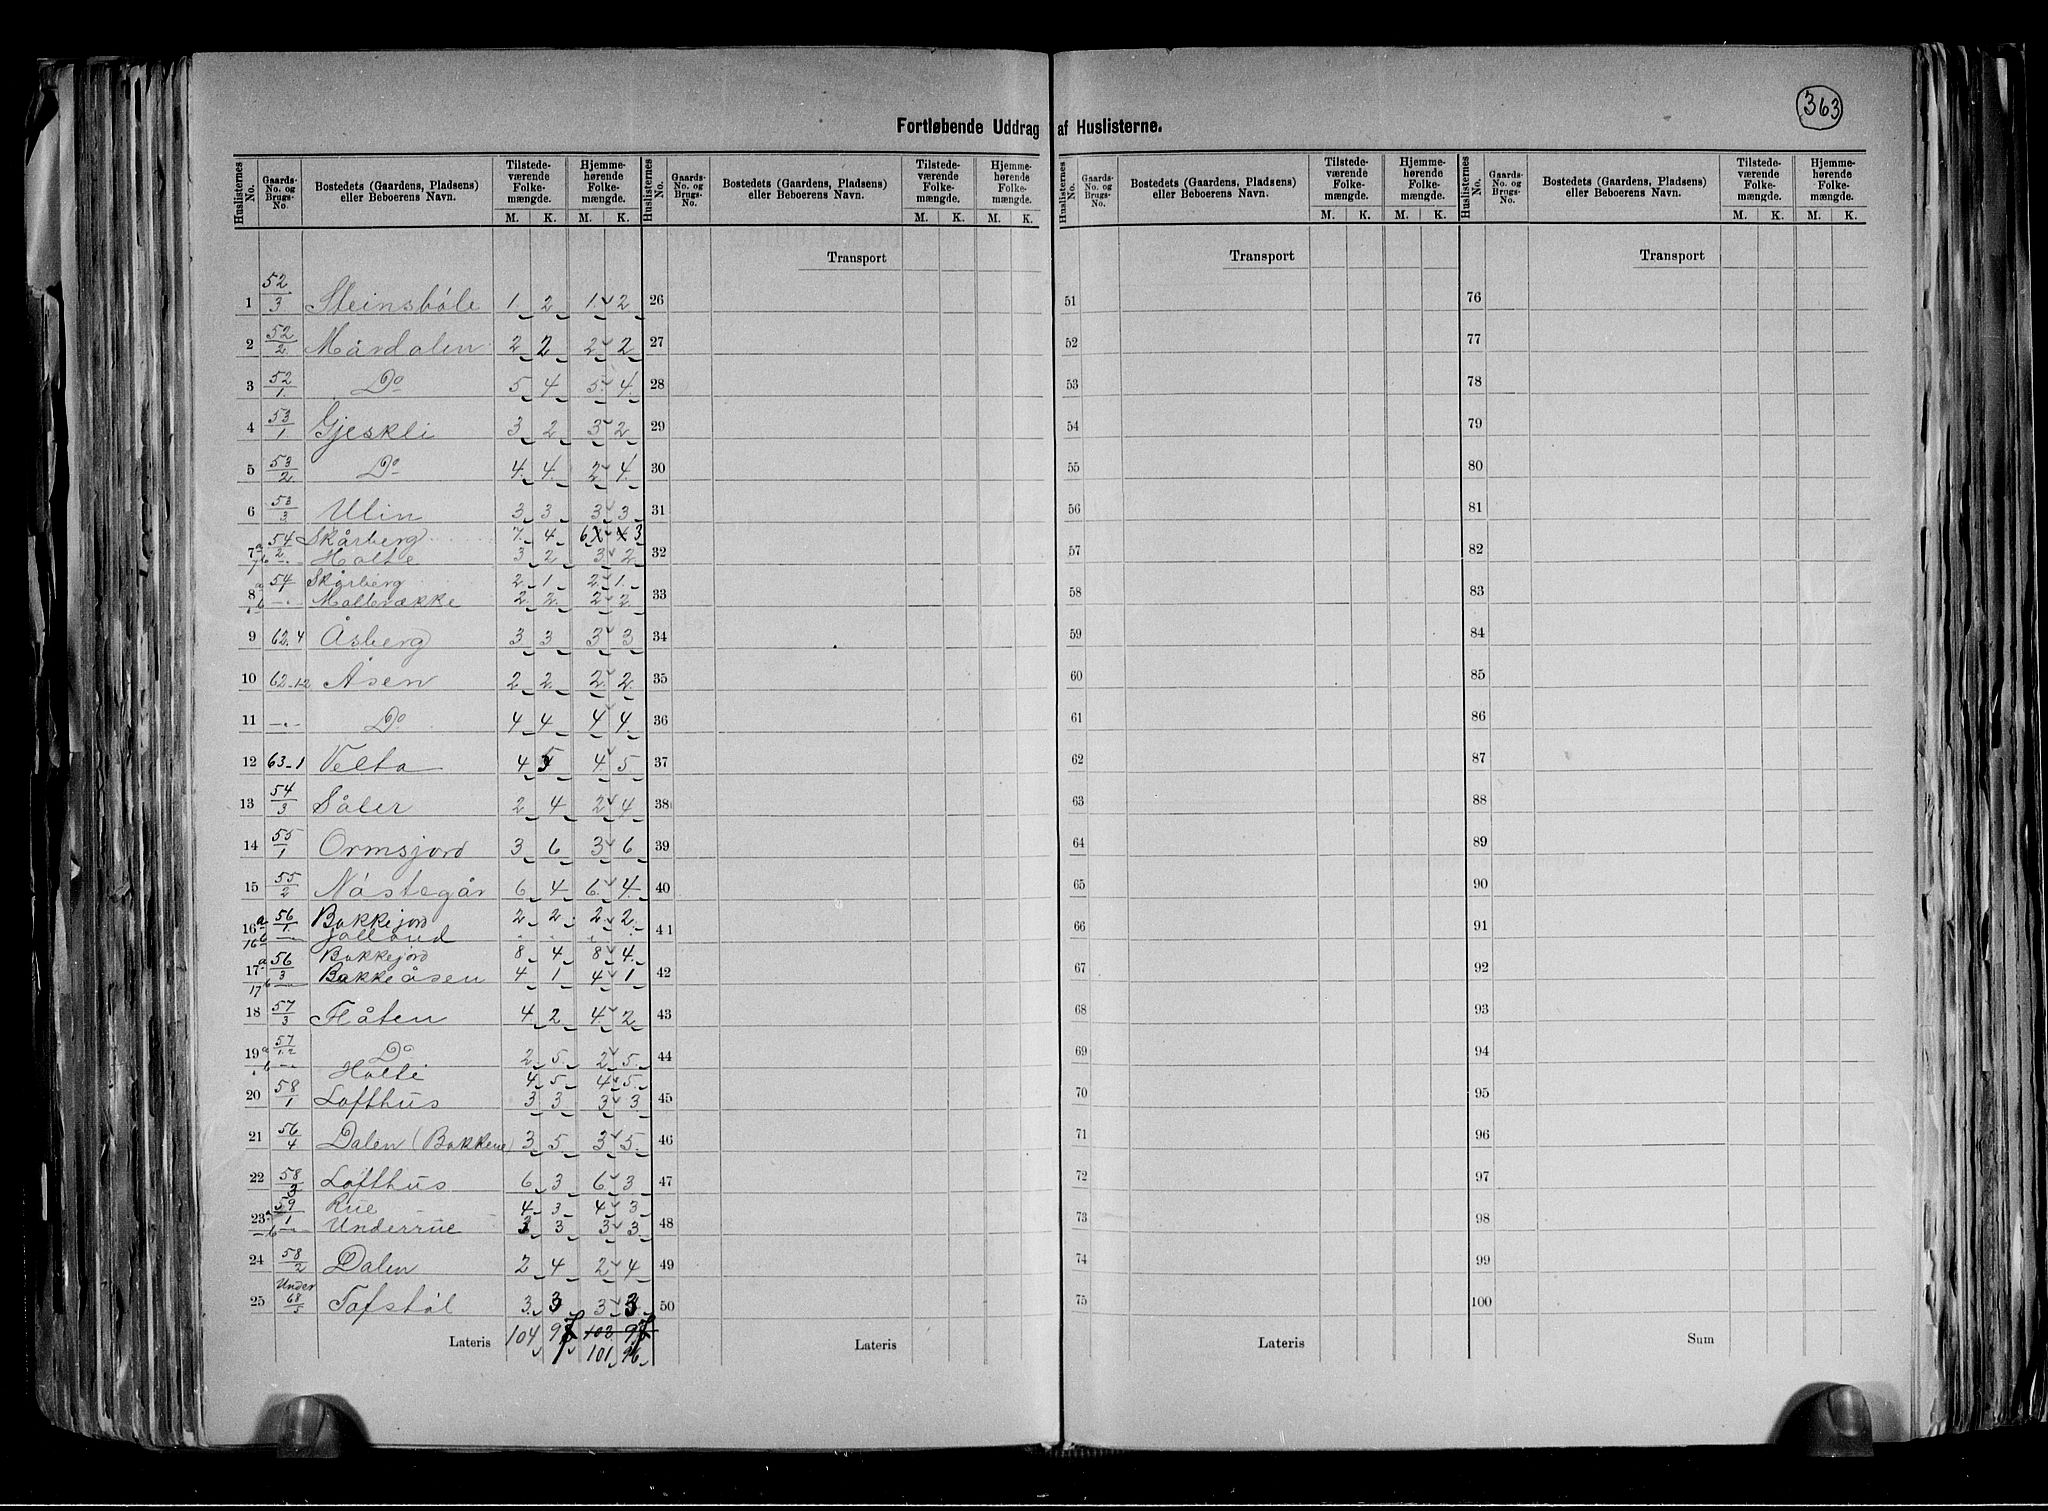 363
Fortløbende Uddrag af Huslisterne.
Huslisternes No. Gaards-No. og Brugs-No. Bostedets (Gaardens, Pladsens) eller Beboerens Navn. Tilstedeværende Folkemængde. M. K. Hjemmehørende Folkemængde. M. K.
Huslisternes No. Gaards-No. og Brugs-No. Bostedets (Gaardens, Pladsens) eller Beboerens Navn. Tilstedeværende Folkemængde. M. K. Hjemmehørende Folkemængde. M. K.
Huslisternes No. Gaards-No. og Brugs-No. Bostedets (Gaardens, Pladsens) eller Beboerens Navn. Tilstedeværende Folkemængde. M. K. Hjemmehørende Folkemængde. M. K.
Huslisternes No. Gaards-No. og Brugs-No. Bostedets (Gaardens, Pladsens) eller Beboerens Navn. Tilstedeværende Folkemængde. M. K. Hjemmehørende Folkemængde. M. K.
Transport Transport Transport
1 52/3 Steinsböle 1 2 1 2 26 51 76
2 52/2 Mårdalen 2 2 2 2 27 52 77
3 52/1 Do 5 4 5 4 28 53 78
4 53/1 Gjeskli 3 2 3 2 29 54 79
5 53/2 Do 4 4 2 4 30 55 80
6 53/3 Ulin 3 3 3 3 31 56 81
7 a 54/2 Skårberg 7 4 6 3
b Holte 3 2 3 2 32 57 82
8 a 54 Skårberg 2 1 2 1
b 2 2 2 2 33 58 83
9 62.4 Åsberg 3 3 3 3 34 59 84
10 62-1-2 Åsen 2 2 2 2 35 60 85
11 -"- Do 4 4 4 4 36 61 86
12 63-1 Velta 4 5 4 5 37 62 87
13 54/3 Såler 2 4 2 4 38 63 88
14 55/1 Ormsjord 3 6 3 6 39 64 89
15 55/2 Nåstegår 6 4 6 4 40 65 90
16 a 56/1 Bakkejord 2 2 2 2
16 b Jölland 41 66 91
17 a 56/3 Bakkejord 8 4 8 4
17 b Bakkeåsen 4 1 4 1 42 67 92
18 57/3 Flåten 4 2 4 2 43 68 93
19 a 57/1.2 Do 2 5 2 5 44 69 94
b Holte 4 5 4 5
20 58/1 Lofthus 3 3 3 3 45 70 95
21 56/4 Dalen (Bakkene) 3 5 3 5 46 71 96
22 58/3 Lofthus 6 3 6 3 47 72 97
23 a 59/1 Rue 4 3 4 3
b Underrue 3 3 3 3 48 73 98
24 58/2 Dalen 2 4 2 4 49 74 99
25 Under 68/5 Tofstöl 3 3 3 3 50 75 100
Lateris 104 97 102 97 Lateris Lateris Sum
101 96